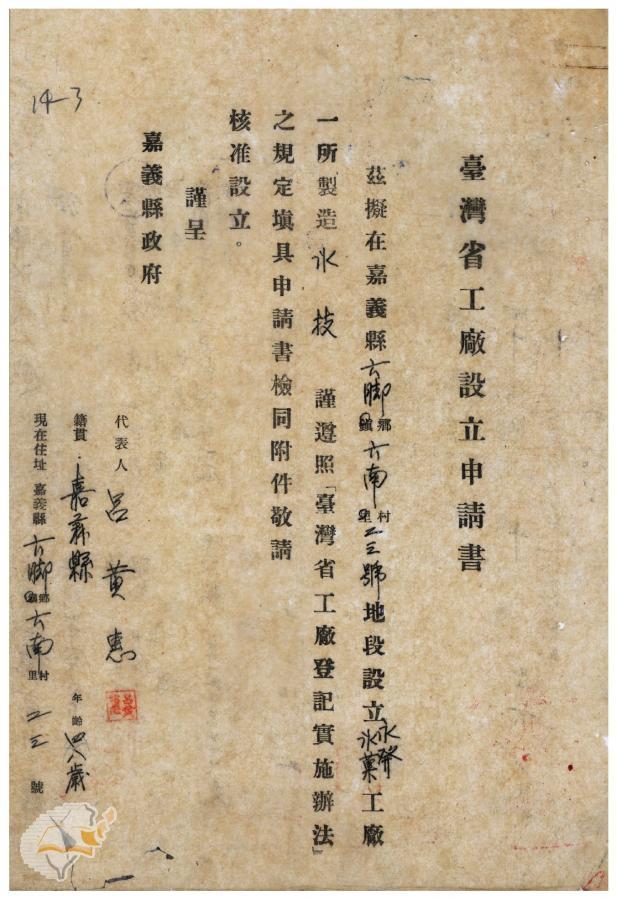 臺灣省工廠設立申請書
茲擬在嘉義縣六腳鄉鎮六南村里二三號地段設立永發冰菓工廠
一所製造冰技謹遵照「臺灣省工廠登記實施辦法」
之規定塡具申請書檢同附件敬請
核准設立。
謹呈
嘉義縣政府
代表人 呂黃惠
籍貫 嘉義縣 年齡 四八歲
現在住址 嘉義縣六腳鄉鎮六南村里二三號
14-3